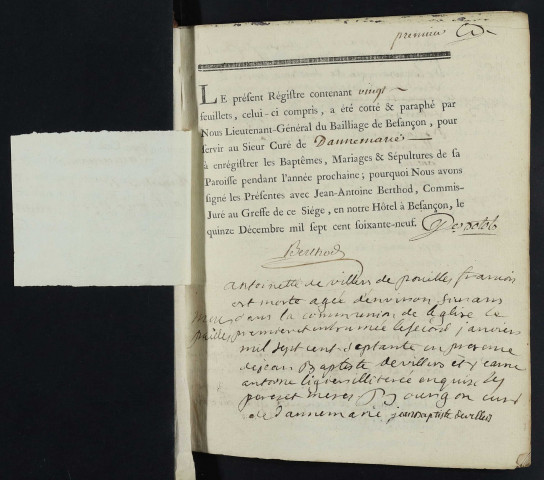 premier
LE présent Régistre contenant vingt
feuillets, celui-ci compris, a été cotté & paraphé par
Nous Lieutenant-Général du Bailliage de Besançon, pour
servir au Sieur Curé de Dannemarie
à enrégistrer les Baptêmes, Mariages & Sépultures de sa
Paroisse pendant l'année prochaine; pourquoi Nous avons
signé les Présentes avec Jean-Antoine Berthod, Commis-
Juré au Greffe de ce Siége, en notre Hôtel à Besançon, le
quinze Décembre mil sept cent soixante-neuf.
Berthod
antoinette de villers de pouilley francois
est morte agée d'environ ans
dans la communion de l'eglise le
premier et inhumée le second janvier
mil sept cent septante en presence
de jean Baptiste devillers et
antoine illiteré enquis les
pere et meres Bourgon curé
de dannemarie jean baptiste devillers